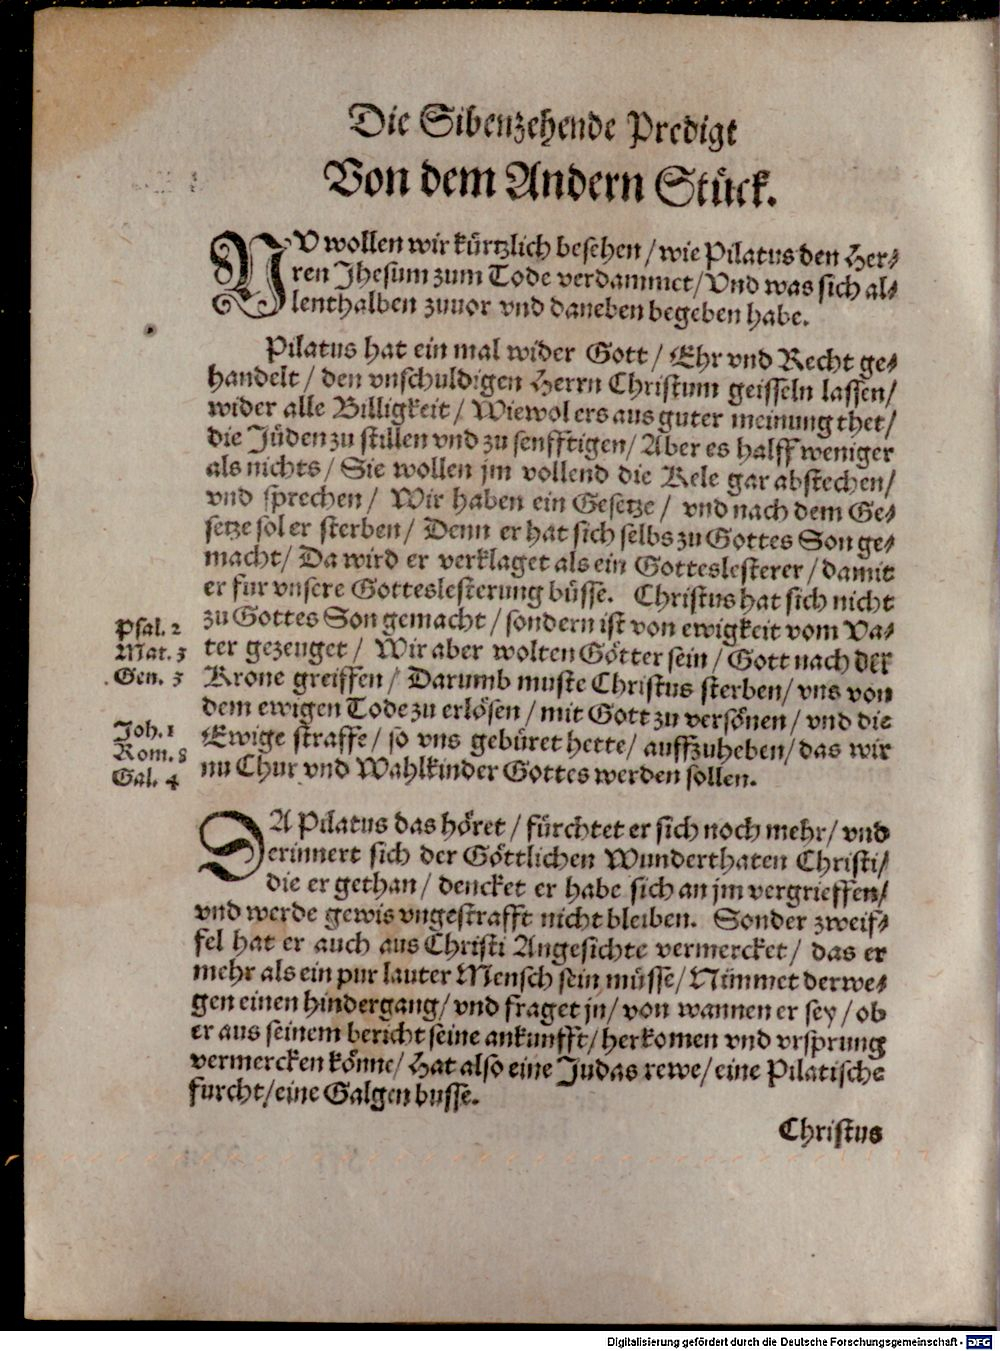 Die Sibenzehende Predigt
Von dem Andern Stück.
NV wollen wir kürtzlich besehen / wie Pilatus den Her-
ren Jhesum zum Tode verdammet / Vnd was sich al-
lenthalben zuuor vnd daneben begeben habe.
Pilatus hat ein mal wider Gott / Ehr vnd Recht ge-
handelt / den vnschuldigen Herrn Christum geisseln lassen /
wider alle Billigkeit / Wiewol ers aus guter meinung thet /
die Jüden zu stillen vnd zu senfftigen / Aber es halff weniger
als nichts / Sie wollen jm vollend die Kele gar abstechen /
vnd sprechen / Wir haben ein Gesetze / vnd nach dem Ge-
setze sol er sterben / Denn er hat sich selbs zu Gottes Son ge-
macht / Da wird er verklaget als ein Gotteslesterer / damit
er fur vnsere Gotteslesterung büsse. Christus hat sich nicht
zu Gottes Son gemacht / sondern ist von ewigkeit vom Va-
ter gezeuget / Wir aber wolten Götter sein / Gott nach der
Krone greiffen / Darumb muste Christus sterben / vns von
dem ewigen Tode zu erlösen / mit Gott zu versönen / vnd die
Ewige straffe / so vns gebüret hette / auffzuheben / das wir
nu Chur vnd Wahlkinder Gottes werden sollen.
Psal. 2
Mat. 3
Gen. 3
Joh. 1
Rom. 8
Gal. 4
DA Pilatus das höret / fürchtet er sich noch mehr / vnd
erinnert sich der Göttlichen Wunderthaten Christi /
die er gethan / dencket er habe sich an jm vergrieffen /
vnd werde gewis vngestrafft nicht bleiben. Sonder zweif-
fel hat er auch aus Christi Angesichte vermercket / das er
mehr als ein pur lauter Mensch sein müsse / Nimmet derwe-
gen einen hindergang / vnd fraget jn / von wannen er sey / ob
er aus seinem bericht seine ankunfft / herkomen vnd vrsprung
vermercken könne / Hat also eine Judas rewe / eine Pilatische
furcht / eine Galgen busse.
Christus
Digitalisierung gefördert durch die Deutsche Forschungsgemeinschaft - DFG